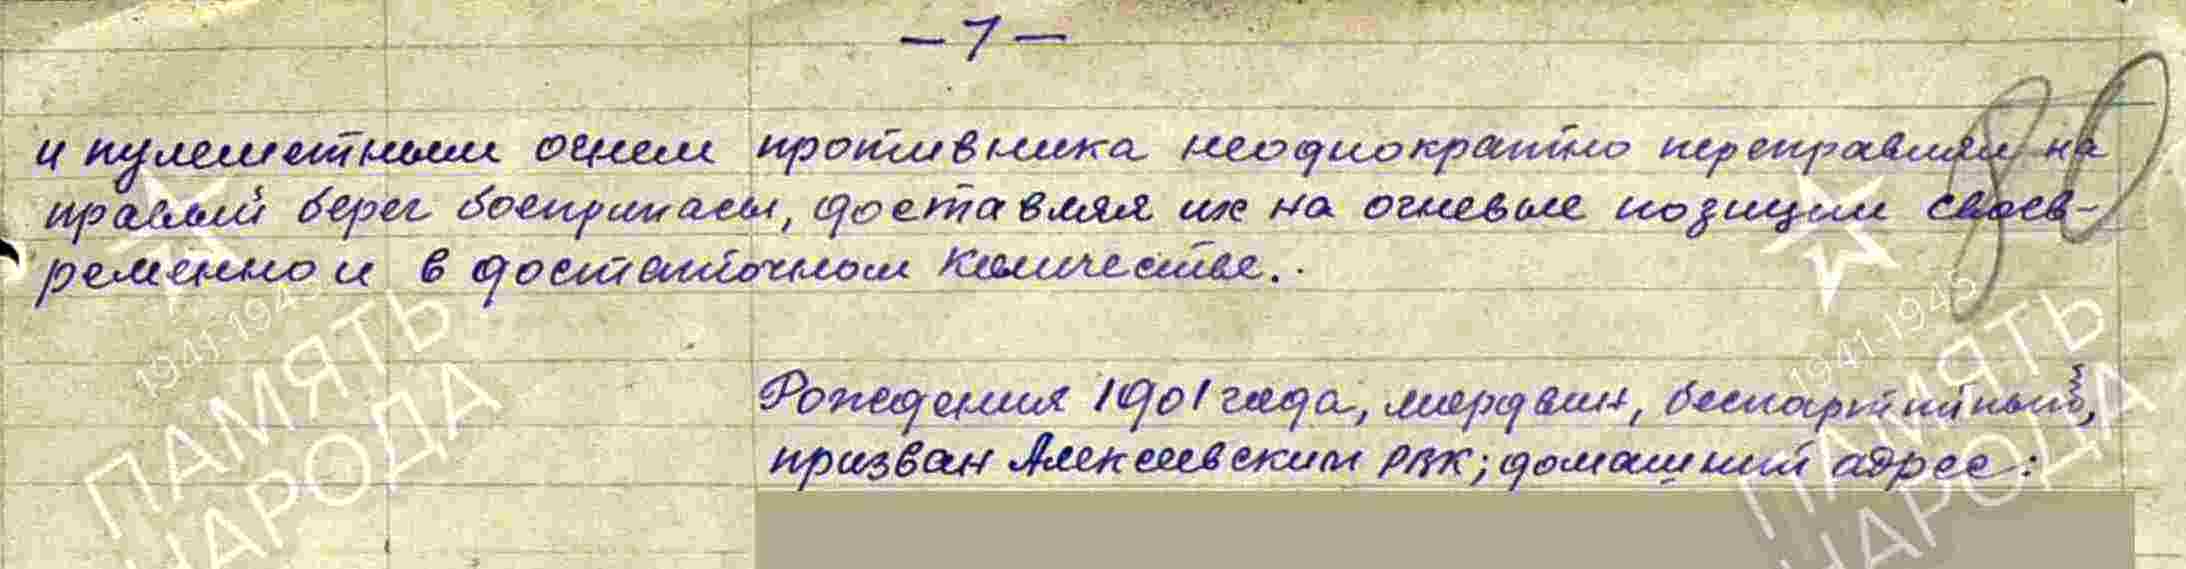 – 7 –
80
и пулеметным огнем противника неоднократно переправлял на
правый берег боеприпасы, доставляя их на огневые позиции своев-
ременно и в достаточном количестве.
Рождения 1901 года, мордвин, беспартийный,
призван Алексеевским РВК; домашний адрес:
1941-1945
ПАМЯТЬ
НАРОДА
1941-1945
ПАМЯТЬ
НАРОДА